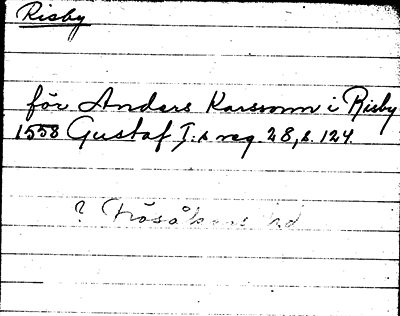 Risby
för Anders Karssonn i Risby
1558 Gustaf I:s reg. 28, s. 124.
? Fräsåkers hd